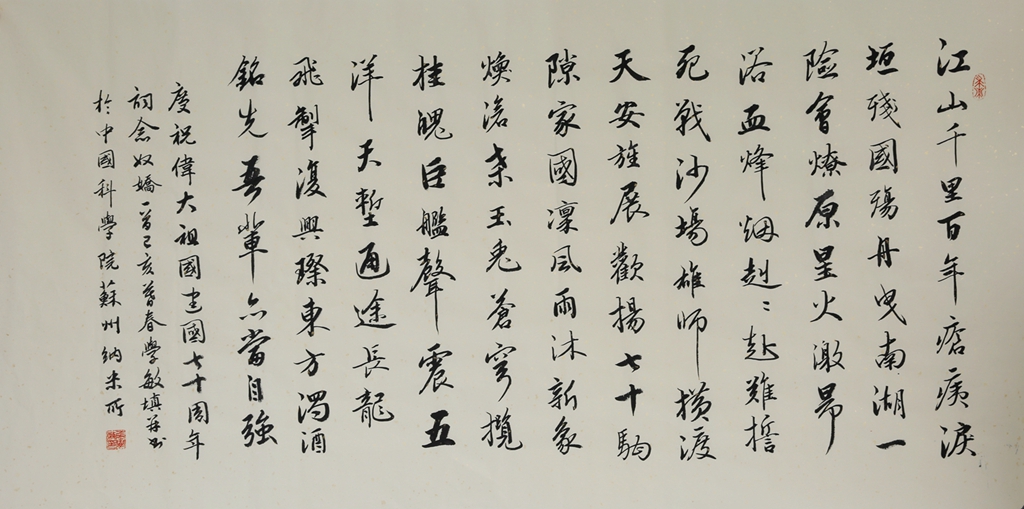 江山千里百年瘡痍淚
垣殘國殤丹曳南湖一
險會燎原星火激昂
浴血烽烟赳〻赴難誓
死戰沙場雄師橫渡
天安旌展歡揚七十駒
隙家國凜風雨沐新象
煥滄桑玉兔蒼穹攬
桂魄巨艦聲震五
洋天塹通途長龍
飛掣復興璨東方濁酒
銘先吾輩亦當自強
慶祝偉大祖國建國七十周年
詞念奴嬌一首己亥暮春學敏填并书
於中國科學院蘇州納米所